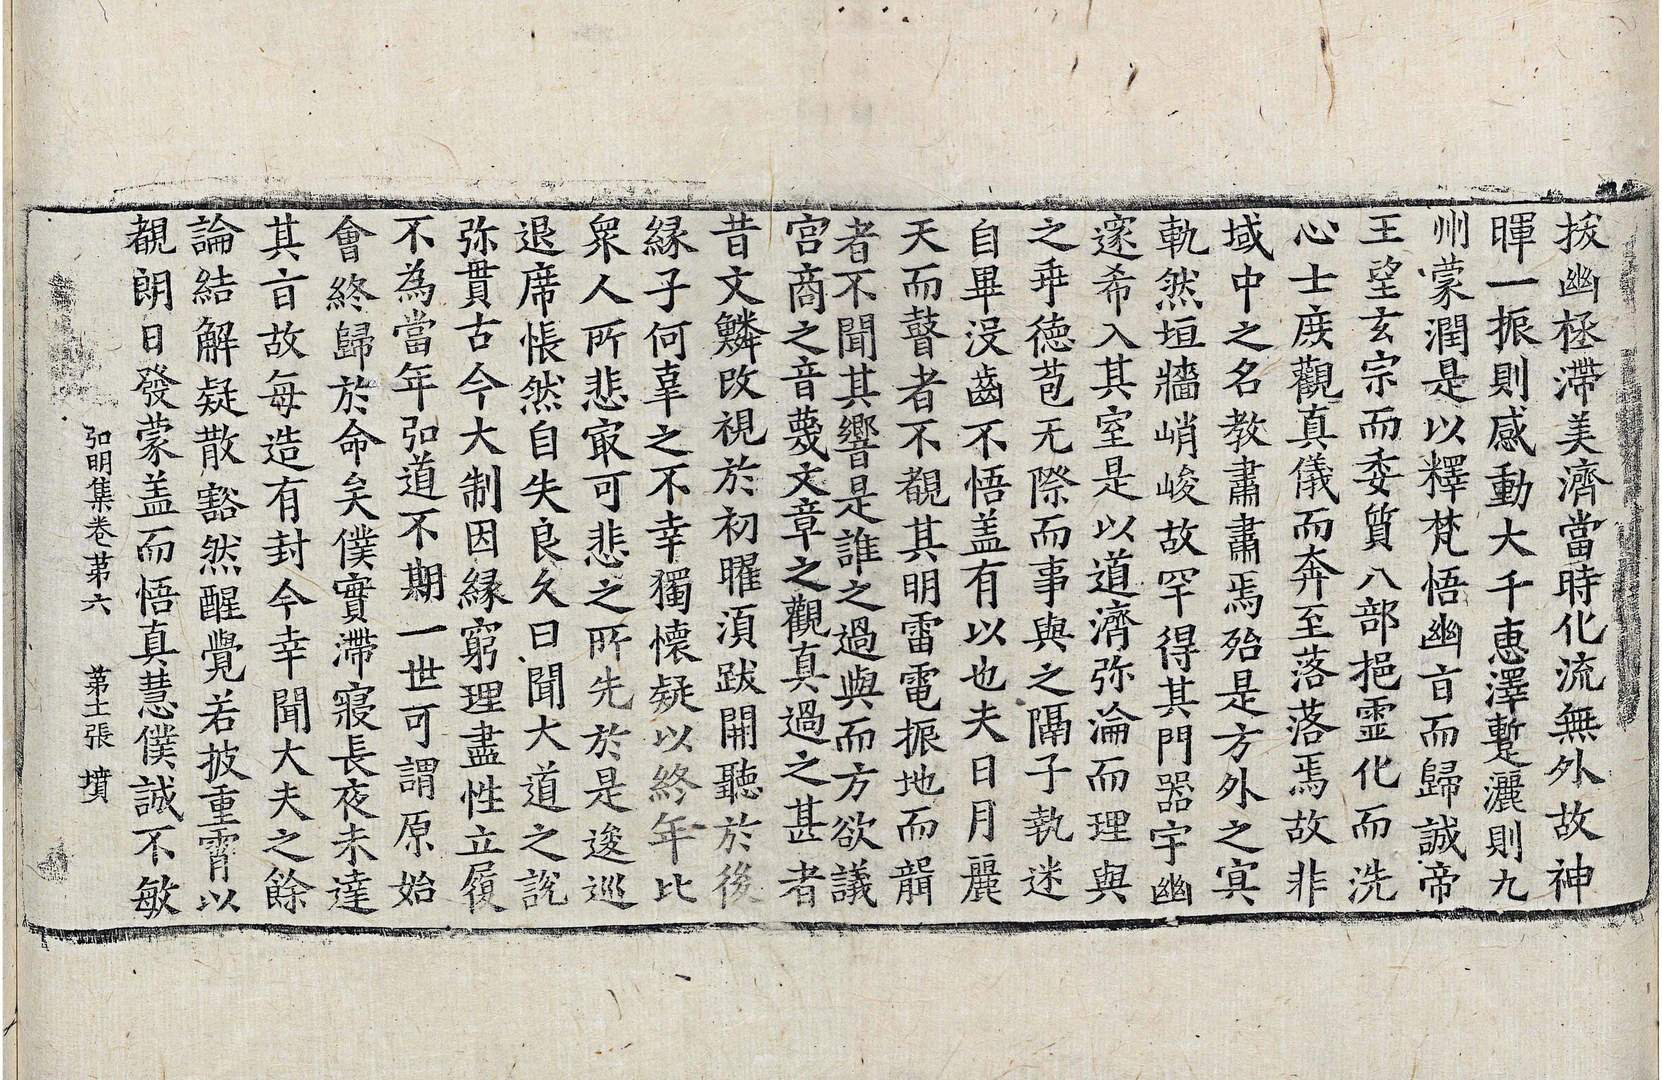 拔幽拯滯美濟當時化流無外故神
暉一振則感動大千惠澤蹔灑則九
州蒙潤是以釋梵悟幽言而歸誠帝
王望玄宗而委質八部挹靈化而洗
心士庶觀真儀而奔至落落焉故非
域中之名教肅肅焉殆是方外之㝠
軌然垣牆峭峻故罕得其門器宇幽
邃希入其室是以道濟弥淪而理與
之乖德苞无際而事與之隔子執迷
自畢没齒不悟盖有以也夫日月麗
天而瞽者不覩其明雷電振地而聾
者不聞其響是誰之過與而方欲議
宮商之音蔑文章之觀真過之甚者
昔文鱗改視於初曜須跋開聽於後
緣子何辜之不幸獨懷疑以終年比
衆人所悲㝡可悲之所先於是逡巡
退席悵然自失良久曰聞大道之說
弥貫古今大制因緣窮理盡性立履
不為當年弘道不期一世可謂原始
會終歸於命矣僕實滯寢長夜未達
其言故每造有封今幸聞大夫之餘
論結解疑散豁然醒覺若披重霄以
覩朗日發蒙盖而悟真慧僕誠不敏
弘明集卷苐六 苐十一張 墳